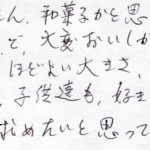 ん、和菓子かと思
で、大変おいしか
ほどよい大きさ、
、子供達も、好き
求めたいと思って